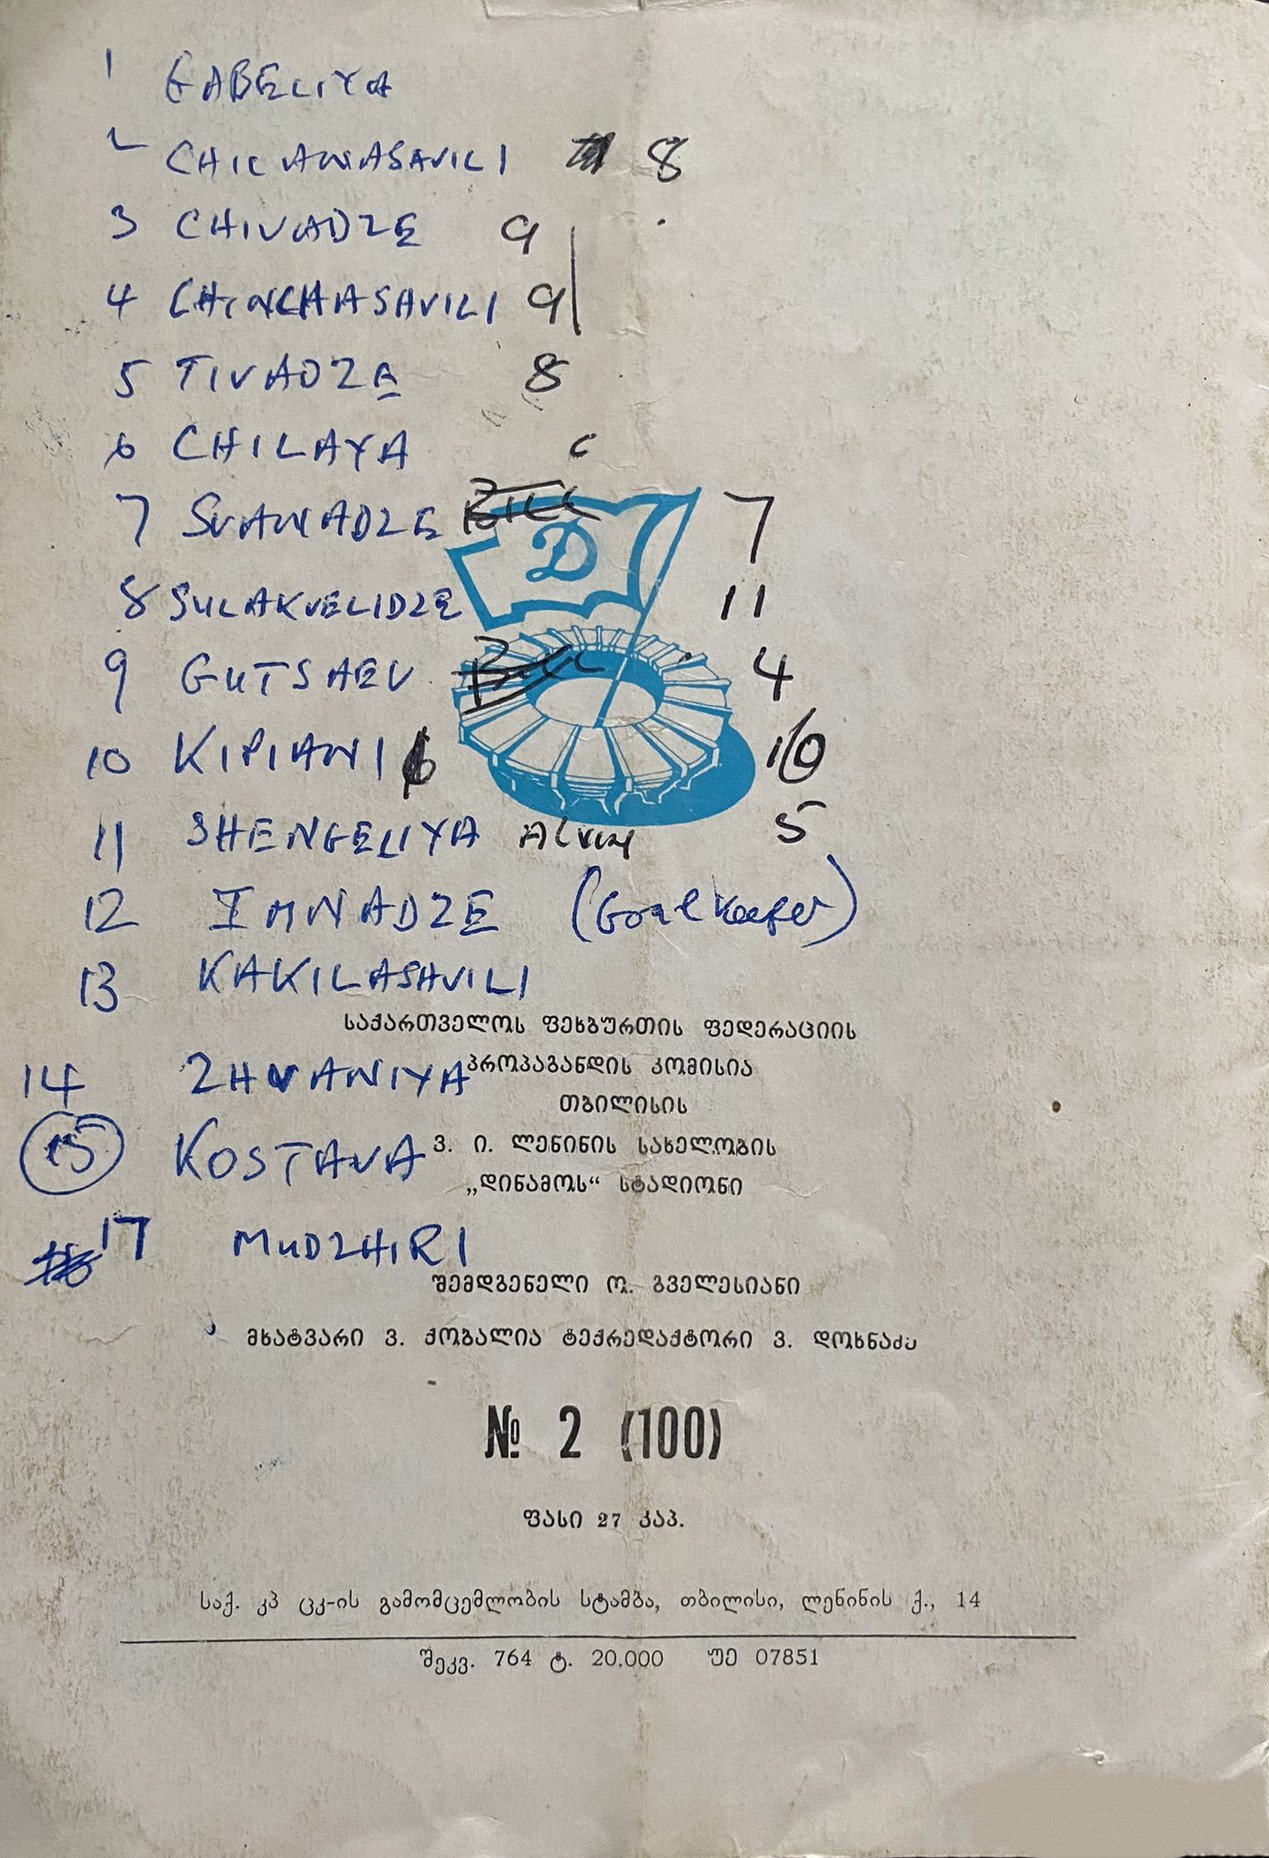 1 GABELIYA
2 CHILANASAVILI 8
3 CHIVADZE 9
4 CHINCHASHVILI 9
5 TIVADZE 8
6 CHILAYA c
7 SVANADZE 7
8 SULAKVELIDZE 11
9 GUTSAEV 4
10 KIPIANI 6 10
11 SHENGELIYA ALVIN 5
12 IMNADZE (Goalkeeper)
13 KAKILASHVILI
საქართველოს ფეხბურთის ფედერაციის
14 ZHVANIYA პროპაგანდის კომისია
თბილისის
15 KOSTAVA ვ. ი. ლენინის სახელობის
„დინამოს“ სტადიონი
17 MUDZHIRI
შემდგენელი ო. გველესიანი
მხატვარი ვ. ქობალია ტექრედაქტორი ვ. დოხნაძე
№ 2 (100)
ფასი 27 კაპ.
საქ. კპ ცკ-ის გამომცემლობის სტამბა, თბილისი, ლენინის ქ., 14
შეკვ. 764 ტ. 20.000 უე 07851
D